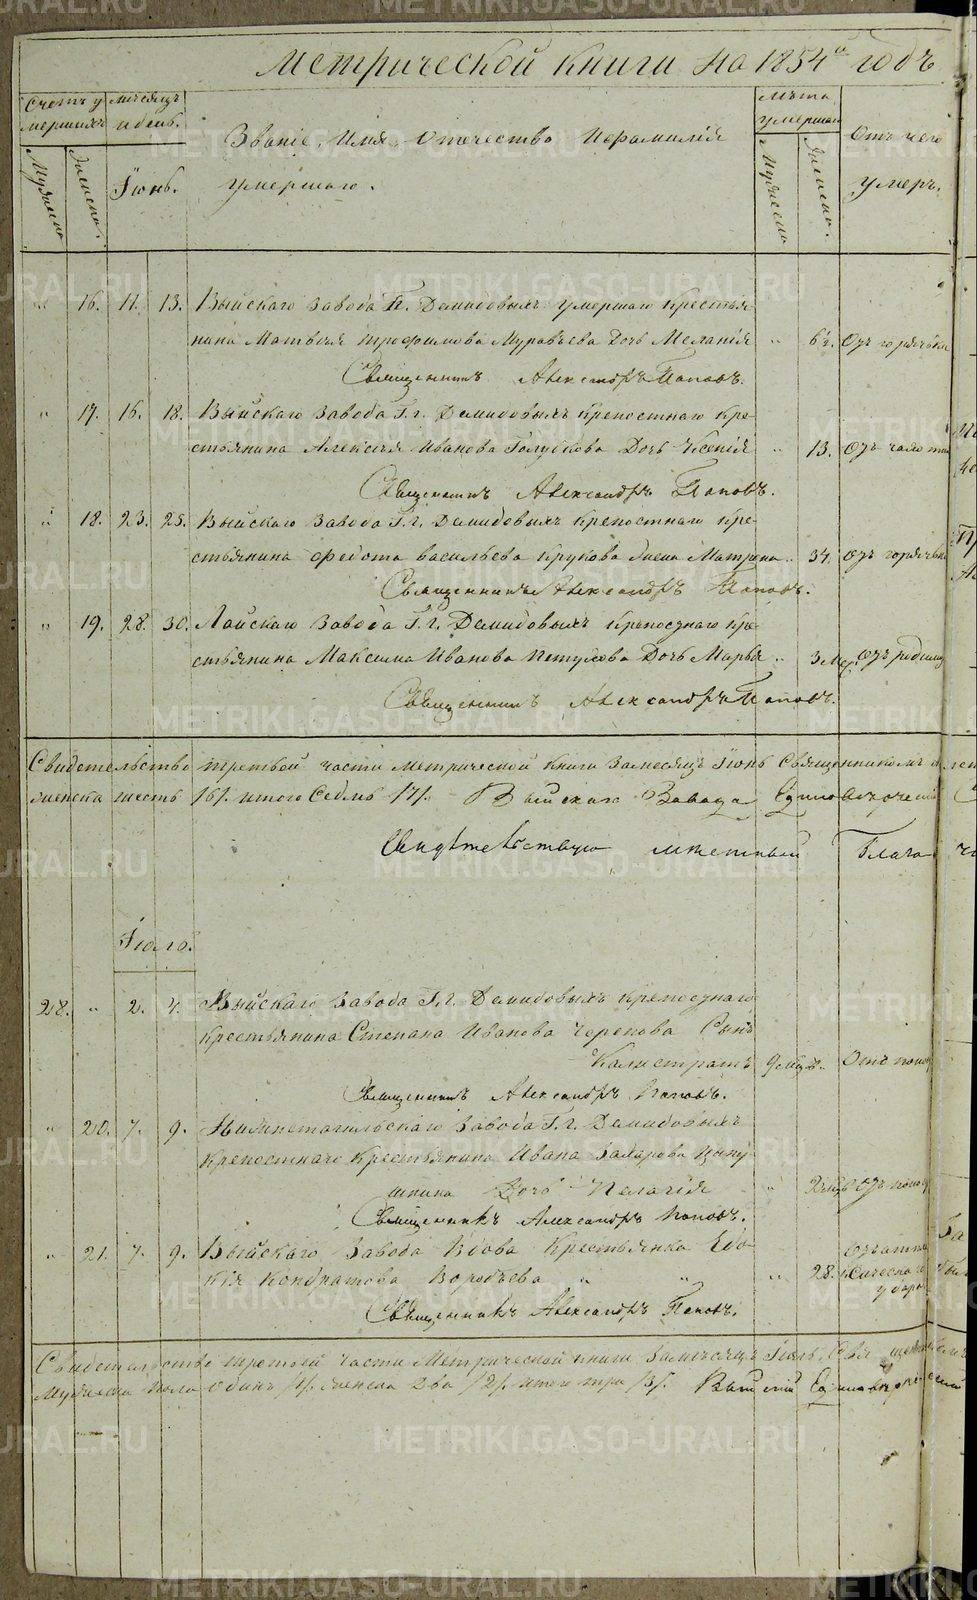 Метрической книги на 1854й годъ
Счетъ умершихъ
Мужеска
Женска.
Месяцъ и день.
Іюнь.
Званіе, Имя, Отчество и фамилія
умершаго.
Лѣта умершаго
Мужеска
Женска.
Отъ чего
умеръ.
" 16. 11. 13. Выйскаго завода Г. Демидовыхъ умершаго крестья-
нина Матвѣя Трофимова Муравьева Дочь Меланія " Отъ горячки
Священникъ Александръ Поповъ.
" 17. 16. 18. Выйскаго завода Г.г. Демидовыхъ крепостнаго кре-
стьянина Алексѣя Иванова Голубкова Дочь Ксенія " 13. Отъ
Священникъ Александръ Поповъ.
" 18. 23. 25. Выйскаго завода Г.г. Демидовыхъ крепостнаго кре-
стьянина Федота Васильева Крукова жена Матрена " 34. Отъ горячки
Священникъ Александръ Поповъ.
" 19. 28. 30. Лайскаго завода Г.г. Демидовыхъ крепостнаго кре-
стьянина Максима Иванова Петухова Дочь Марья " 3 Мес. Отъ родимца
Священникъ Александръ Поповъ.
Свидетельство третьей части метрической книги за месяцъ Іюнь Священникомъ
женска шесть /6/. итого Седмь /7/. Выйскаго Завода Единоверческой
Свидѣтельствую местный Благо
Іюль.
28. " 2. 4. Выйскаго завода Г.г. Демидовыхъ крепостнаго
крестьянина Степана Иванова Черепова Сынъ
Калистратъ 9 мцъ. Отъ поно
Священникъ Александръ Поповъ.
" 20. 7. 9. Нижнетагильскаго завода Г.г. Демидовыхъ
крепостнаго крестьянина Ивана Захарова
Дочь Пелагія " Отъ поно
Священникъ Александръ Поповъ.
" 21. 7. 9. Выйскаго завода Вдова Крестьянка Евдо-
кія Кондратова Воробьева " " " 28.
удара
Священникъ Александръ Поповъ.
Свидетельство третьей части Метрической книги за месяцъ Іюль
Мужеска пола одинъ /1/. женска два /2/. итого три /3/. Выйскій Единоверческій
METRIKI.GASO-URAL.RU